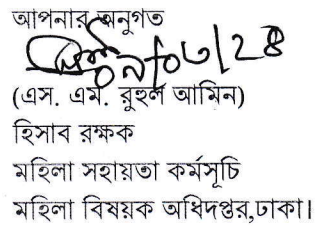 আপনার অনুগত
(এস. এম. রুহুল আমিন)
হিসাব রক্ষক
মহিলা সহায়তা কর্মসূচি
মহিলা বিষয়ক অধিদপ্তর,ঢাকা।